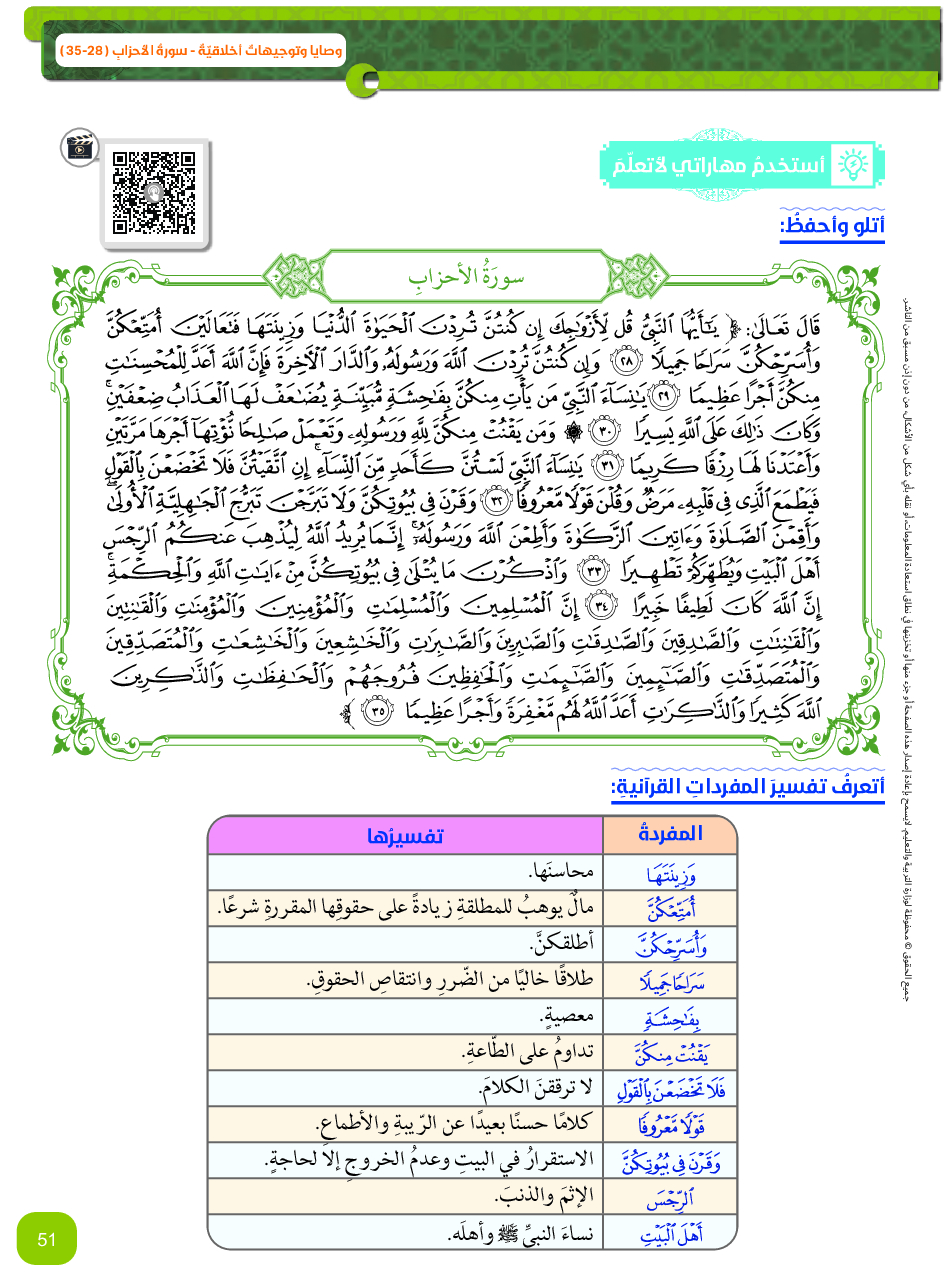 وصايا وتوجيهاتٌ أخلاقيّةٌ - سورةُ الأحزابِ (28-35)
أستخدمُ مهاراتي لأتعلّمَ
أتلو وأحفظُ:
سورَةُ الأحزابِ
قَالَ تَعَالَىٰ: ﴿ يَٰٓأَيُّهَا ٱلنَّبِيُّ قُل لِّأَزۡوَٰجِكَ إِن كُنتُنَّ تُرِدۡنَ ٱلۡحَيَوٰةَ ٱلدُّنۡيَا وَزِينَتَهَا فَتَعَالَيۡنَ أُمَتِّعۡكُنَّ
وَأُسَرِّحۡكُنَّ سَرَاحٗا جَمِيلٗا ٢٨ وَإِن كُنتُنَّ تُرِدۡنَ ٱللَّهَ وَرَسُولَهُۥ وَٱلدَّارَ ٱلۡأٓخِرَةَ فَإِنَّ ٱللَّهَ أَعَدَّ لِلۡمُحۡسِنَٰتِ
مِنكُنَّ أَجۡرًا عَظِيمٗا ٢٩ يَٰنِسَآءَ ٱلنَّبِيِّ مَن يَأۡتِ مِنكُنَّ بِفَٰحِشَةٖ مُّبَيِّنَةٖ يُضَٰعَفۡ لَهَا ٱلۡعَذَابُ ضِعۡفَيۡنِۚ
وَكَانَ ذَٰلِكَ عَلَى ٱللَّهِ يَسِيرٗا ٣٠ ۞ وَمَن يَقۡنُتۡ مِنكُنَّ لِلَّهِ وَرَسُولِهِۦ وَتَعۡمَلۡ صَٰلِحٗا نُّؤۡتِهَآ أَجۡرَهَا مَرَّتَيۡنِ
وَأَعۡتَدۡنَا لَهَا رِزۡقٗا كَرِيمٗا ٣١ يَٰنِسَآءَ ٱلنَّبِيِّ لَسۡتُنَّ كَأَحَدٖ مِّنَ ٱلنِّسَآءِ إِنِ ٱتَّقَيۡتُنَّۚ فَلَا تَخۡضَعۡنَ بِٱلۡقَوۡلِ
فَيَطۡمَعَ ٱلَّذِي فِي قَلۡبِهِۦ مَرَضٞ وَقُلۡنَ قَوۡلٗا مَّعۡرُوفٗا ٣٢ وَقَرۡنَ فِي بُيُوتِكُنَّ وَلَا تَبَرَّجۡنَ تَبَرُّجَ ٱلۡجَٰهِلِيَّةِ ٱلۡأُولَىٰۖ
وَأَقِمۡنَ ٱلصَّلَوٰةَ وَءَاتِينَ ٱلزَّكَوٰةَ وَأَطِعۡنَ ٱللَّهَ وَرَسُولَهُۥٓۚ إِنَّمَا يُرِيدُ ٱللَّهُ لِيُذۡهِبَ عَنكُمُ ٱلرِّجۡسَ
أَهۡلَ ٱلۡبَيۡتِ وَيُطَهِّرَكُمۡ تَطۡهِيرٗا ٣٣ وَٱذۡكُرۡنَ مَا يُتۡلَىٰ فِي بُيُوتِكُنَّ مِنۡ ءَايَٰتِ ٱللَّهِ وَٱلۡحِكۡمَةِۚ
إِنَّ ٱللَّهَ كَانَ لَطِيفًا خَبِيرًا ٣٤ إِنَّ ٱلۡمُسۡلِمِينَ وَٱلۡمُسۡلِمَٰتِ وَٱلۡمُؤۡمِنِينَ وَٱلۡمُؤۡمِنَٰتِ وَٱلۡقَٰنِتِينَ
وَٱلۡقَٰنِتَٰتِ وَٱلصَّٰدِقِينَ وَٱلصَّٰدِقَٰتِ وَٱلصَّٰبِرِينَ وَٱلصَّٰبِرَٰتِ وَٱلۡخَٰشِعِينَ وَٱلۡخَٰشِعَٰتِ وَٱلۡمُتَصَدِّقِينَ
وَٱلۡمُتَصَدِّقَٰتِ وَٱلصَّٰٓئِمِينَ وَٱلصَّٰٓئِمَٰتِ وَٱلۡحَٰفِظِينَ فُرُوجَهُمۡ وَٱلۡحَٰفِظَٰتِ وَٱلذَّٰكِرِينَ
ٱللَّهَ كَثِيرٗا وَٱلذَّٰكِرَٰتِ أَعَدَّ ٱللَّهُ لَهُم مَّغۡفِرَةٗ وَأَجۡرًا عَظِيمٗا ٣٥ ﴾
أتعرفُ تفسيرَ المفرداتِ القرآنيةِ:
المفردةُ تفسيرُها
وَزِينَتَهَا محاسنَها.
أُمَتِّعۡكُنَّ مالٌ يوهبُ للمطلقةِ زيادةً على حقوقِها المقررةِ شرعًا.
وَأُسَرِّحۡكُنَّ أطلقكنَّ.
سَرَاحٗا جَمِيلٗا طلاقًا خاليًا من الضّررِ وانتقاصِ الحقوقِ.
بِفَٰحِشَةٖ معصيةٍ.
يَقۡنُتۡ مِنكُنَّ تداومُ على الطّاعةِ.
فَلَا تَخۡضَعۡنَ بِٱلۡقَوۡلِ لا ترققنَ الكلامَ.
قَوۡلٗا مَّعۡرُوفٗا كلامًا حسنًا بعيدًا عن الرّيبةِ والأطماعِ.
وَقَرۡنَ فِي بُيُوتِكُنَّ الاستقرارُ في البيتِ وعدمُ الخروجِ إلا لحاجةٍ.
ٱلرِّجۡسَ الإثمَ والذنبَ.
أَهۡلَ ٱلۡبَيۡتِ نساءَ النبيِّ ﷺ وأهلَه.
جميع الحقوق © محفوظة لوزارة التربية والتعليم. لايسمح بإعادة إصدار هذه الصفحة أو جزء منها أو تخزينها في نطاق استعادة المعلومات، أو نقله بأي شكل من الأشكال، من دون إذن مسبق من الناشر.
51